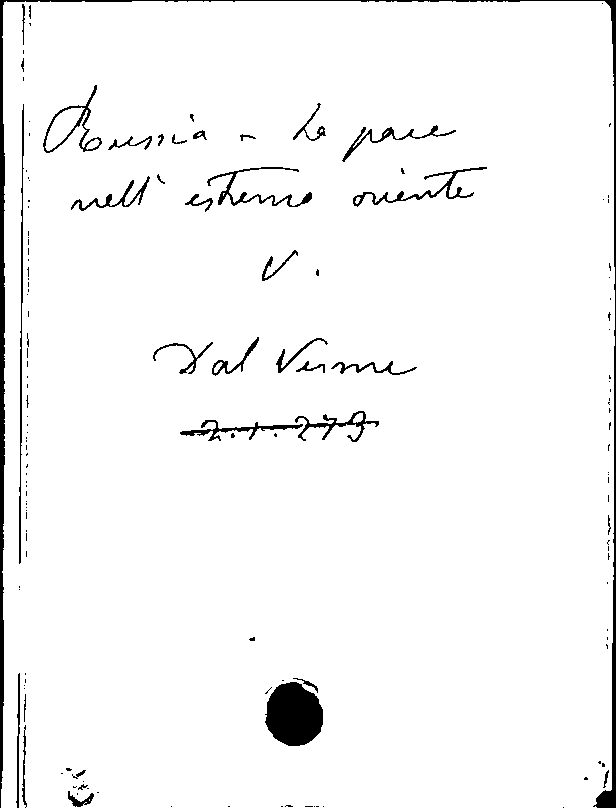 Russia - La pace
nell' estremo oriente
V.
Dal Verme
2.1.279